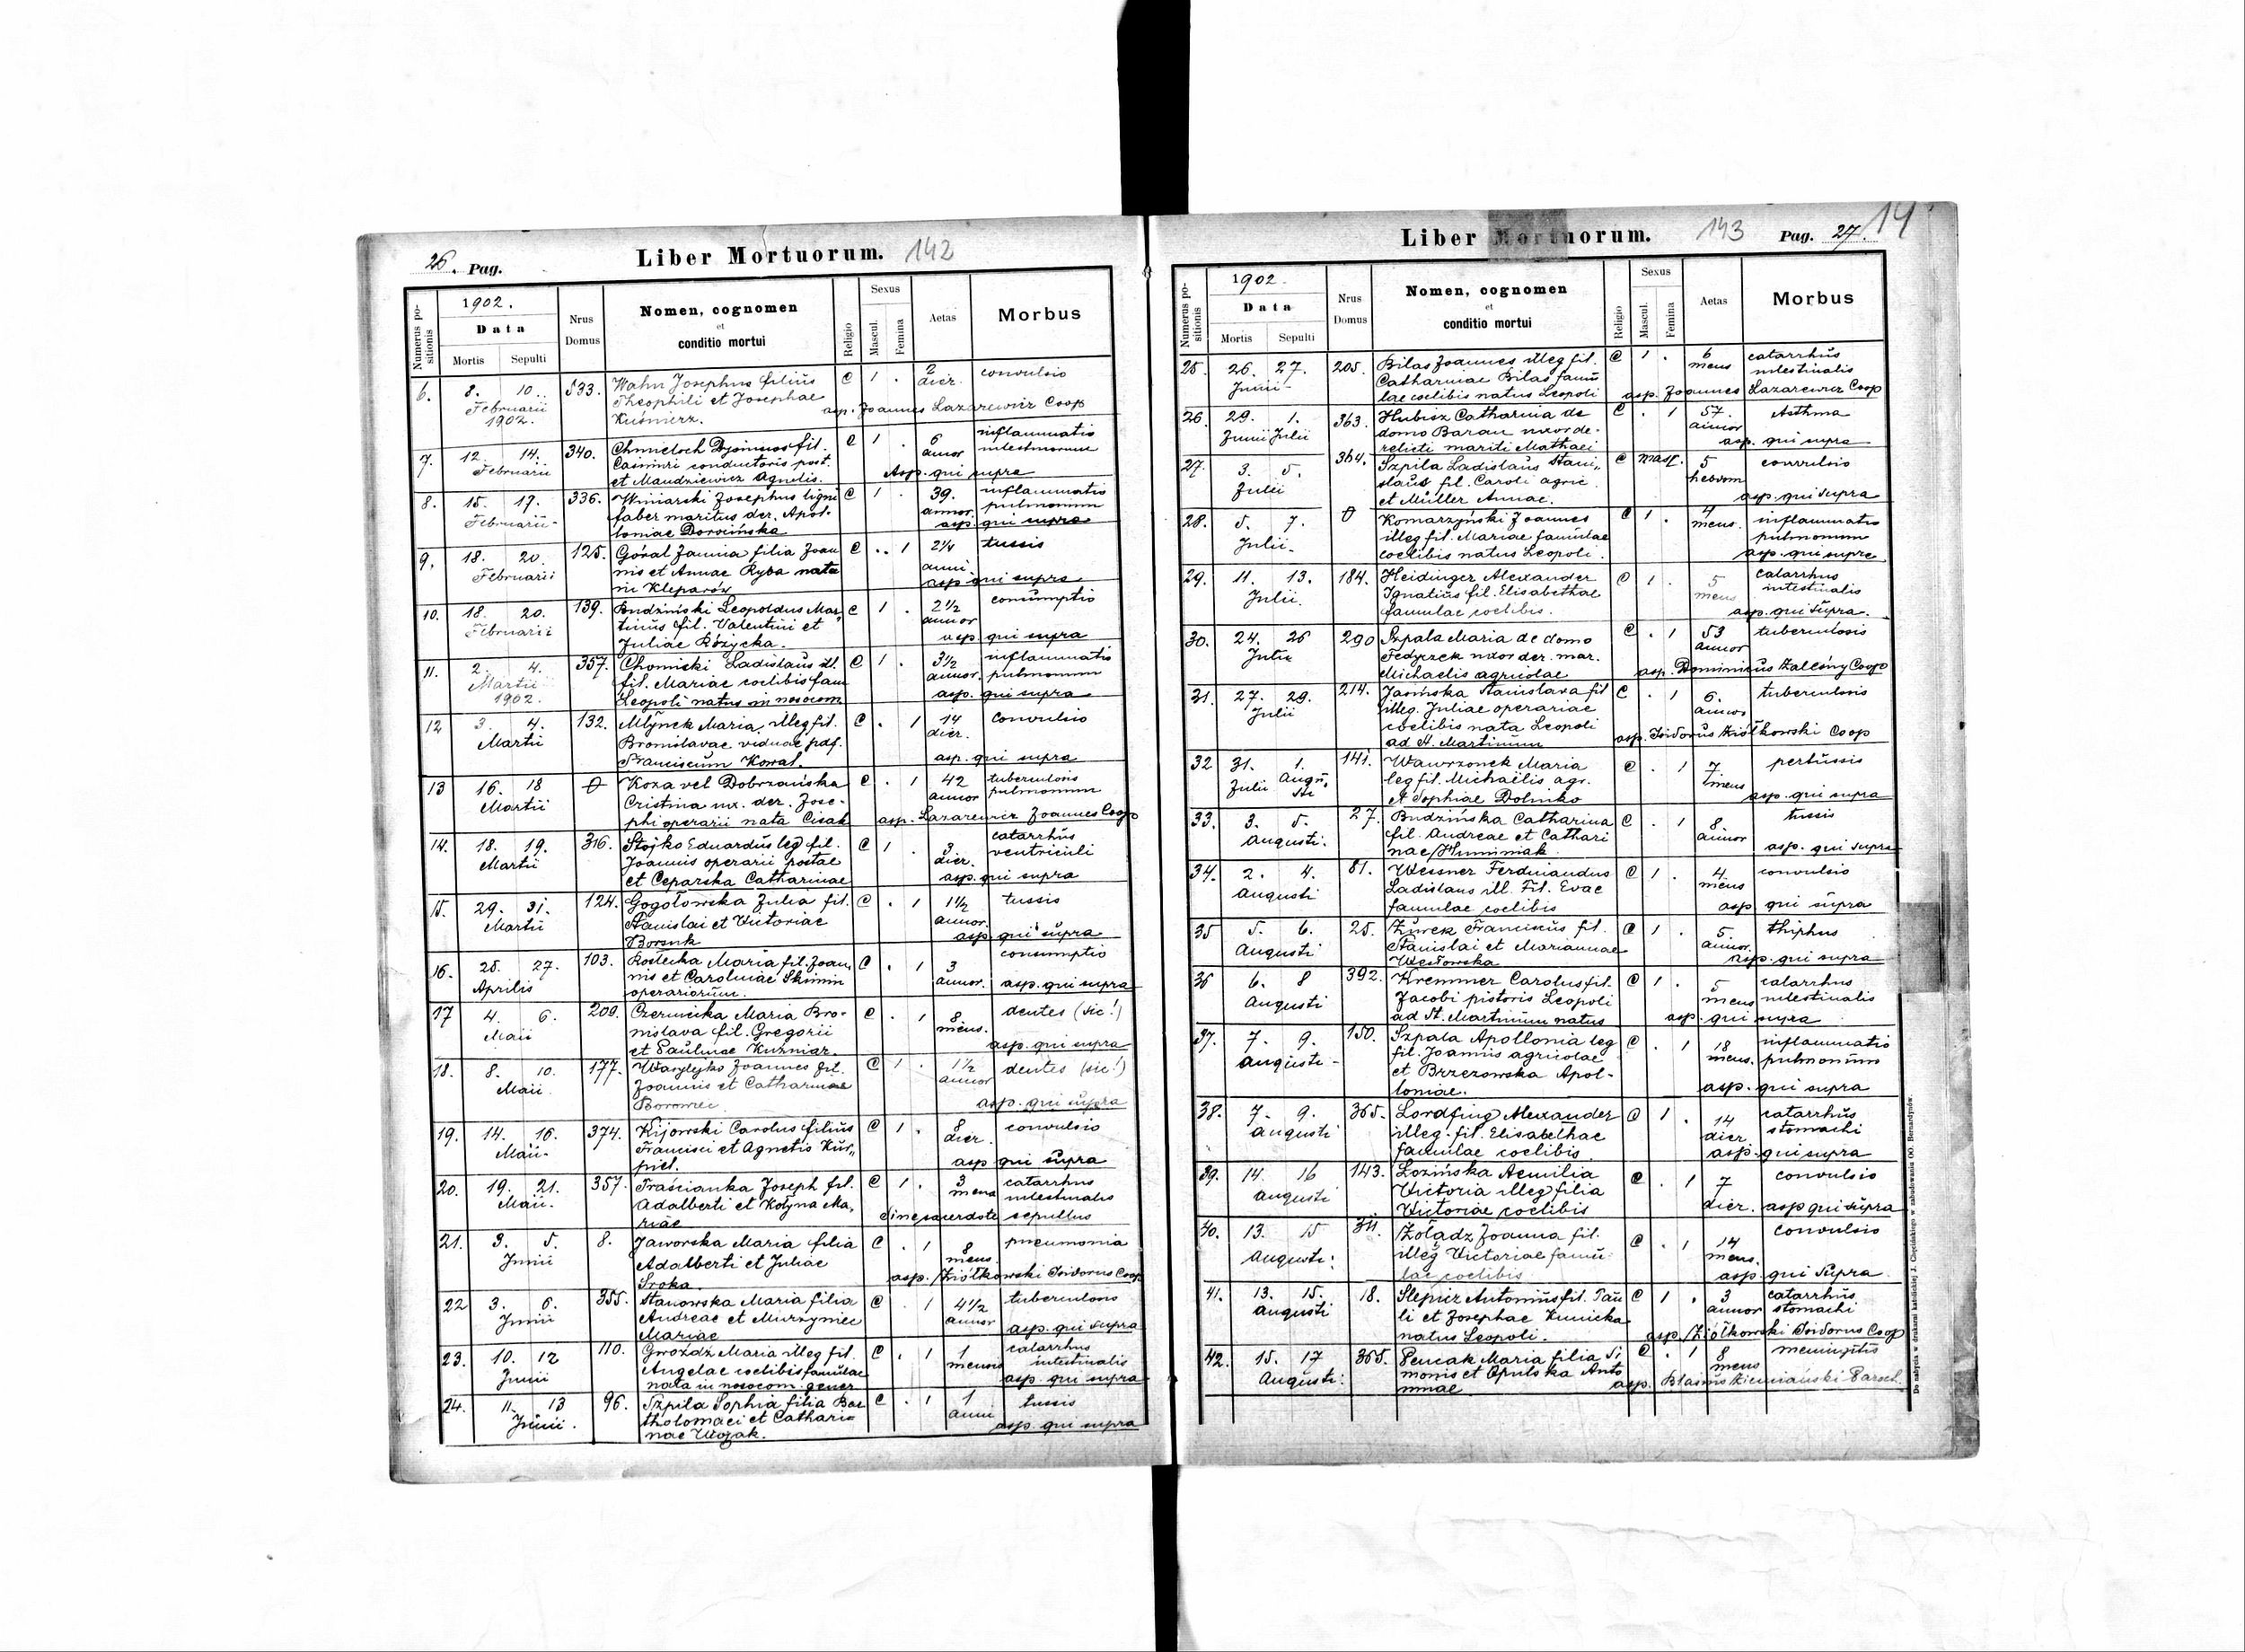 26. Pag.
Liber Mortuorum. 142
Numerus positionis
1902.
Data
Mortis Sepulti
Nrus Domus
Nomen, cognomen
et
conditio mortui
Religio
Sexus
Mascul. Femina
Aetas
Morbus
6. 8. 10. 533. Wahn Josephus filius C 1 . 2 convulsio
Februarii Theophili et Josephae dier.
1902. Kuśnierz. asp. Joannes Lazarewicz Coop
7. 12. 14. 340. fil. C 1 . 6 inflammatio
Februarii Casimiri conductoris post. annor intestinorum
et Mandziewicz Agnetis. Asp. qui supra
8. 15. 17. 336. Winiarski Josephus ligni C 1 . 39. inflammatio
Februarii faber maritus der. Apol- annor. pulmonum
loniae asp. qui supra
9. 18. 20. 125. Góral Janina filia Joan C . . 1 2¼ tussis
Februarii nis et Annae Ryba nata anni.
in Kleparów asp qui supra
10. 18. 20. 139. Budziński Leopoldus Mar C 1 . 2½ consumptio
Februarii tinus fil. Valentini et annor
Juliae Różycka. asp. qui supra
11. 2. 4. 357. Chomiski Ladislaus ill. C 1 . 3½ inflammatio
Martii fil. Mariae coelibis fam annor. pulmonum
1902. Leopoli natus in nosocom asp. qui supra
12 3. 4. 132. Młynek Maria, illeg fil. C . 1 14 convulsio
Martii Bronislavae viduae pdf. dier.
Franciscum Kowal. asp. qui supra
13 16. 18 0 Koza vel Dobrzańska C . 1 42 tuberculosis
Martii Cristina ux. der. Jose- annor pulmonum
phi operarii nata Cisak asp. Lazarewicz Joannes Coop
14. 18. 19. 316. Stojko Eduardus leg fil. C 1 . 3 catarrhus
Martii Joannis operarii postae dier. ventriculi
et Ceparska Catharinae asp. qui supra
15. 29. 31. 124. Gogołowska Julia fil. C . 1 1½ tussis
Martii Stanislai et Victoriae annor.
Borsuk asp. qui supra
16. 25. 27. 103. Kostecka Maria fil. Joan C . 1 3 consumptio
Aprilis nis et Carolinae Skimin annor.
operariorum. asp. qui supra
17 4. 6. 200. Czernicka Maria Bro- C . 1 8. dentes (sic!)
Maii nislava fil. Gregorii mens.
et Paulinae Kuźniar. asp. qui supra
18. 8. 10. 177. Wasylejko Joannes fil. C 1 . 1½ dentes (sic!)
Maii Joannis et Catharinae annor
Borowiec asp. qui supra
19. 14. 16. 374. Kijowski Carolus filius C 1 . 8 convulsio
Maii- Francisci et Agnetis Kur„ dier.
piel. asp qui supra
20. 19. 21. 357. Traścianka Joseph fil. C 1 . 3 catarrhus
Maii. Adalberti et Ma„ mens intestinalis
riae Sine sacerdote sepultus
21. 3. 5. 8. Jaworska Maria filia C . 1 8 pneumonia
Junii Adalberti et Juliae mens.
Sroka asp. Ziółkowski Isidorus Coop
22 3. 6. 355. Stanowska Maria filia C . 1 4½ tuberculosis
Junii Andreae et Murzyniec annor
Mariae asp. qui supra
23. 10. 12 110. Gwozdz Maria illeg fil. C . 1 1 catarrhus
Junii Angelae coelibis famulae mensis intestinalis
nata in nosocom. gener asp. qui supra
24. 11. 13 96. Szpila Sophia filia Bar C . 1 1 tussis
Junii. tholomaei et Cathari= anni
nae asp. qui supra
Liber Mortuorum. 143 Pag. 27. 14
Numerus positionis
1902.
Data
Mortis Sepulti
Nrus Domus
Nomen, cognomen
et
conditio mortui
Religio
Sexus
Mascul. Femina
Aetas
Morbus
25. 26. 27. 205. Bilas Joannes illeg fil. C 1 . 6 catarrhus
Junii Catharinae Bilas famu mens intestinalis
lae coelibis natus Leopoli asp. Joannes Lazarewicz Coop
26. 29. 1. 363. Hubisz Catharina de C . 1 57. Asthma
Junii Julii domo Baran uxor de- annor
relicti mariti Mathaei asp. qui supra
27. 3. 5. 364. Szpila Ladislaus Stani„ C Masc. 5 convulsio
Julii slaus fil. Caroli agric hebdom
et Müller Annae. asp. qui supra
28. 5. 7. 0 Komarzyński Joannes C 1 . 4 inflammatio
Julii. illeg fil. Mariae famulae mens. pulmonum
coelibis natus Leopoli. asp. qui supra
29. 11. 13. 184. Heidinger Alexander C 1 . 5 catarrhus
Julii. Ignatius fil. Elisabethae mens intestinalis
famulae coelibis. asp. qui supra.
30. 24. 26 290 Szpala Maria de domo C . 1 53 tuberculosis
Julii Fedyczek uxor der. mar. annor
Michaelis agricolae asp. Dominicus Zaleśny Coop
31. 27. 29. 214. Jasińska Stanislava fil C . 1 6. tuberculosis
Julii illeg. Juliae operariae annor
coelibis nata Leopoli
ad S. Martinum asp. Isidorus Ziółkowski Coop
32 31. 1. 141. Wawrzonek Maria C . 1 7 pertussis
Julii Augu- leg fil. Michaëlis agr. mens
sti et Sophiae Dolniko asp. qui supra
33. 3. 5. 27. Budzińska Catharina C . 1 8 tussis
Augusti. fil. Andreae et Cathari annor
nae asp. qui supra
34. 2. 4. 81. Wessner Ferdinandus C 1 . 4. convulsio
Augusti Ladislaus ill. Fil. Evae mens
famulae coelibis asp qui supra
35 5. 6. 25. Żurek Franciscus fil. C 1 . 5. thiphus
Augusti Stanislai et Mariannae annor.
Węsłowska asp. qui supra
36 6. 8 392. Kremmer Carolus fil. C 1 . 5 catarrhus
Augusti Jacobi pistoris Leopoli mens intestinalis
ad St. Martinum natus asp. qui supra
37. 7. 9. 150. Szpala Apollonia leg C . 1 18 inflammatio
Augusti- fil. Joannis agricolae mens. pulmonum
et Brzezowska Apol-
loniae. asp. qui supra
38. 7. 9. 365. Lordfing Alexander C 1 . 14 catarrhus
Augusti illeg. fil. Elisabethae dier stomachi
famulae coelibis asp. qui supra
39. 14. 16 143. Lozińska Aemilia C . 1 7 convulsio
Augusti Victoria illeg filia
Victoriae coelibis dier. asp qui supra
40. 13. 15 311. Żołądz Joanna fil. C . 1 14 convulsio
Augusti: illeg Victoriae famu mens.
lae coelibis asp. qui supra
41. 13. 15. 18. Slepicz Antonius fil. Pau C 1 . 3 catarrhus
Augusti li et Josephae Kunicka annor stomachi
natus Leopoli. asp. Ziółkowski Isidorus Coop
42. 15. 17 365. Pencak Maria filia Si C . 1 8 meningitis
Augusti. monis et Opulska Anto mens
ninae asp. Blasius
Do nabycia w drukarni katolickiej J. Chęcińskiego w zabudowaniu OO. Bernardynów.